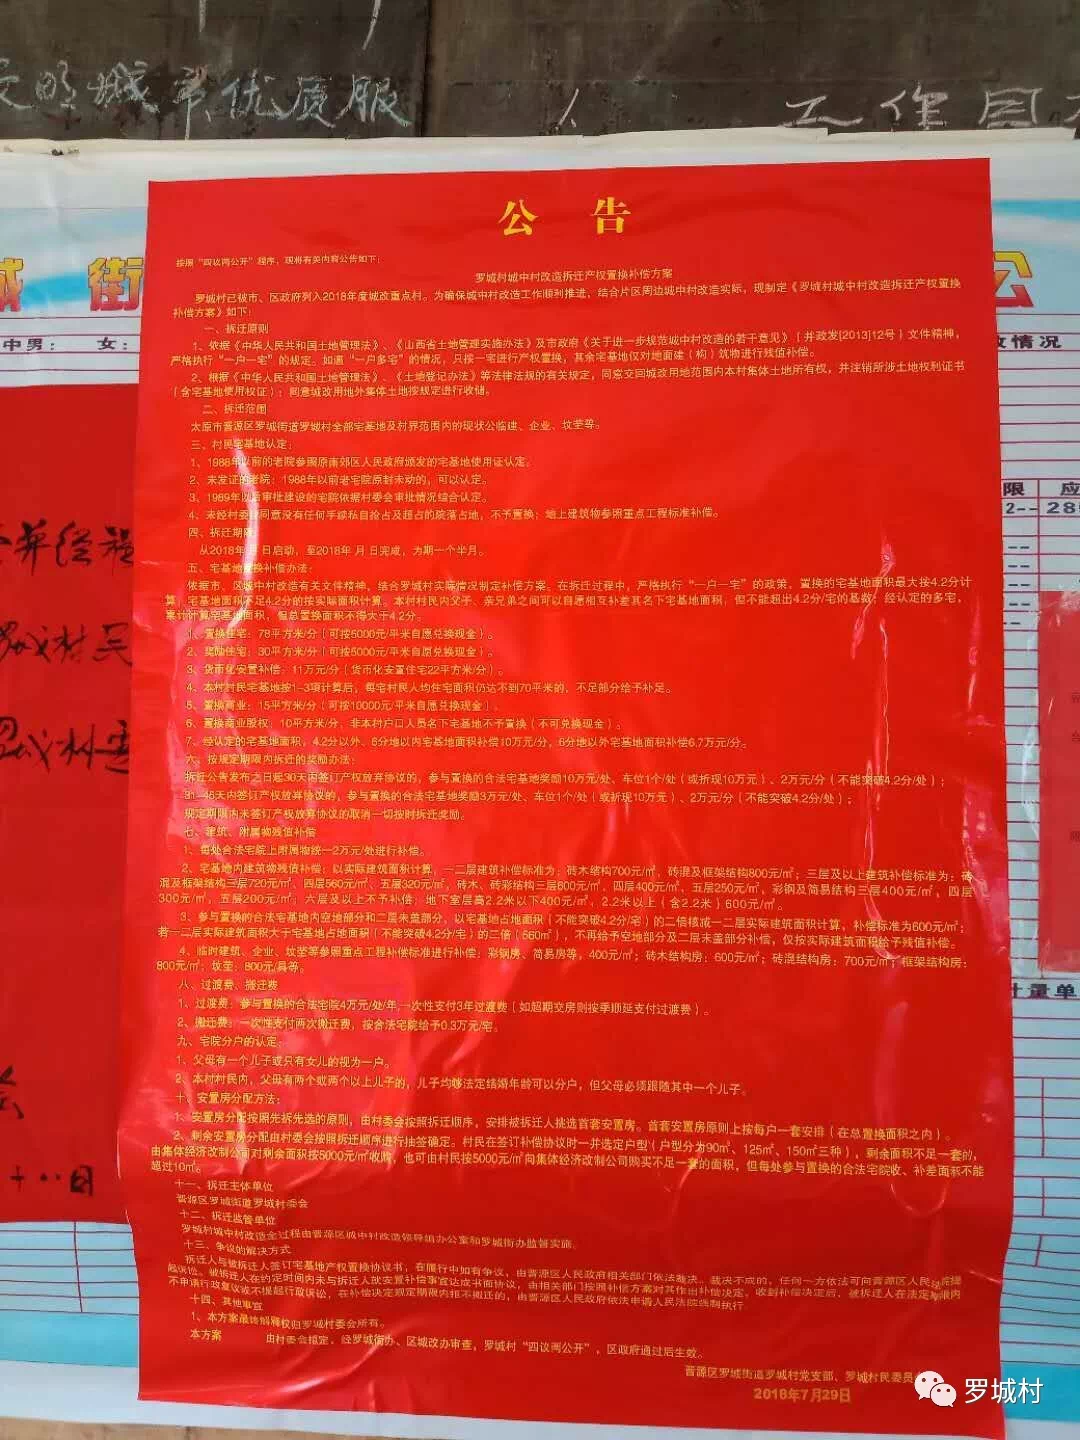 明城市优质服
人
工作
城 街
公
中男： 女：
情况
限 应
计量单
村民
公 告
按照“四议两公开”程序，现将有关内容公告如下：
罗城村城中村改造拆迁产权置换补偿方案
罗城村已被市、区政府列入2018年度城改重点村。为确保城中村改造工作顺利推进，结合片区周边城中村改造实际，现制定《罗城村城中村改造拆迁产权置换
补偿方案》如下：
一、拆迁原则
1、依据《中华人民共和国土地管理法》、《山西省土地管理实施办法》及市政府《关于进一步规范城中村改造的若干意见》（并政发[2013]12号）文件精神，
严格执行“一户一宅”的规定。如遇“一户多宅”的情况，只按一宅进行产权置换，其余宅基地仅对地面建（构）筑物进行残值补偿。
2、根据《中华人民共和国土地管理法》、《土地登记办法》等法律法规的有关规定，同意交回城改用地范围内本村集体土地所有权，并注销所涉土地权利证书
（含宅基地使用权证）；同意城改用地外集体土地按规定进行收储。
二、拆迁范围
太原市晋源区罗城街道罗城村全部宅基地及村界范围内的现状公临建、企业、坟茔等。
三、村民宅基地认定：
1、1988年以前的老院参照原南郊区人民政府颁发的宅基地使用证认定。
2、未发证的老院：1988年以前老宅院原封未动的，可以认定。
3、1989年以后审批建设的宅院依据村委会审批情况综合认定。
4、未经村委会同意没有任何手续私自抢占及超占的院落占地，不予置换；地上建筑物参照重点工程标准补偿。
四、拆迁期限
从2018年 月 日启动，至2018年 月 日完成，为期一个半月。
五、宅基地置换补偿办法：
依据市、区城中村改造有关文件精神，结合罗城村实际情况制定补偿方案。在拆迁过程中，严格执行“一户一宅”的政策，置换的宅基地面积最大按4.2分计
算，宅基地面积不足4.2分的按实际面积计算。本村村民内父子、亲兄弟之间可以自愿相互补差其名下宅基地面积，但不能超出4.2分/宅的基数；经认定的多宅，
累计计算宅基地面积，但总置换面积不得大于4.2分。
1、置换住宅：78平方米/分（可按5000元/平米自愿兑换现金）。
2、奖励住宅：30平方米/分（可按5000元/平米自愿兑换现金）。
3、货币化安置补偿：11万元/分（货币化安置住宅22平方米/分）。
4、本村村民宅基地按1-3项计算后，每宅村民人均住宅面积仍达不到70平米的，不足部分给予补足。
5、置换商业：15平方米/分（可按10000元/平米自愿兑换现金）。
6、置换商业股权：10平方米/分，非本村户口人员名下宅基地不予置换（不可兑换现金）。
7、经认定的宅基地面积，4.2分以外、6分地以内宅基地面积补偿10万元/分，6分地以外宅基地面积补偿6.7万元/分。
六、按规定期限内拆迁的奖励办法：
拆迁公告发布之日起30天内签订产权放弃协议的，参与置换的合法宅基地奖励10万元/处、车位1个/处（或折现10万元）、2万元/分（不能突破4.2分/处）；
31-45天内签订产权放弃协议的，参与置换的合法宅基地奖励3万元/处、车位1个/处（或折现10万元）、2万元/分（不能突破4.2分/处）；
规定期限内未签订产权放弃协议的取消一切按时拆迁奖励。
七、建筑、附属物残值补偿
1、每处合法宅院上附属物统一2万元/处进行补偿。
2、宅基地内建筑物残值补偿：以实际建筑面积计算，一二层建筑补偿标准为：砖木结构700元/㎡，砖混及框架结构800元/㎡；三层及以上建筑补偿标准为：砖
混及框架结构三层720元/㎡，四层560元/㎡、五层320元/㎡，砖木、砖彩结构三层600元/㎡，四层400元/㎡，五层250元/㎡，彩钢及简易结构三层400元/㎡，四层
300元/㎡，五层200元/㎡；六层及以上不予补偿；地下室层高2.2米以下400元/㎡，2.2米以上（含2.2米）600元/㎡。
3、参与置换的合法宅基地内空地部分和二层未盖部分，以宅基地占地面积（不能突破4.2分/宅）的二倍核减一二层实际建筑面积计算，补偿标准为600元/㎡；
若一二层实际建筑面积大于宅基地占地面积（不能突破4.2分/宅）的二倍（560㎡），不再给予空地部分及二层未盖部分补偿，仅按实际建筑面积给予残值补偿。
4、临时建筑、企业、坟茔等参照重点工程补偿标准进行补偿；彩钢房、简易房等，400元/㎡；砖木结构房：600元/㎡；砖混结构房：700元/㎡；框架结构房：
800元/㎡；坟茔：800元/具等。
八、过渡费、搬迁费
1、过渡费：参与置换的合法宅院4万元/处/年，一次性支付3年过渡费（如超期交房则按季顺延支付过渡费）。
2、搬迁费：一次性支付两次搬迁费，按合法宅院给予0.3万元/宅。
九、宅院分户的认定：
1、父母有一个儿子或只有女儿的视为一户。
2、本村村民内，父母有两个或两个以上儿子的，儿子均够法定结婚年龄可以分户，但父母必须跟随其中一个儿子。
十、安置房分配方法：
1、安置房分配按照先拆先选的原则，由村委会按照拆迁顺序，安排被拆迁人挑选首套安置房。首套安置房原则上按每户一套安排（在总置换面积之内）。
2、剩余安置房分配由村委会按照拆迁顺序进行抽签确定。村民在签订补偿协议时一并选定户型（户型分为90㎡、125㎡、150㎡三种），剩余面积不足一套的，
由集体经济改制公司对剩余面积按5000元/㎡收购，也可由村民按5000元/㎡向集体经济改制公司购买不足一套的面积，但每处参与置换的合法宅院收、补差面积不能
超过10㎡。
十一、拆迁主体单位
晋源区罗城街道罗城村委会
十二、拆迁监管单位
罗城村城中村改造全过程由晋源区城中村改造领导组办公室和罗城街办监督实施。
十三、争议的解决方式
拆迁人与被拆迁人签订宅基地产权置换协议书，在履行中如有争议，由晋源区人民政府相关部门依法裁决。裁决不成的，任何一方依法可向晋源区人民法院提
起诉讼。被拆迁人在约定时间内未与拆迁人就安置补偿事宜达成书面协议，由相关部门按照补偿方案对其作出补偿决定。收到补偿决定后，被拆迁人在法定期限内
不申请行政复议或不提起行政诉讼，在补偿决定规定期限内拒不搬迁的，由晋源区人民政府依法申请人民法院强制执行。
十四、其他事宜
1、本方案最终解释权归罗城村委会所有。
本方案 由村委会拟定，经罗城街办、区城改办审查，罗城村“四议两公开”，区政府通过后生效。
晋源区罗城街道罗城村党支部、罗城村民委员
2018年7月29日
罗城村